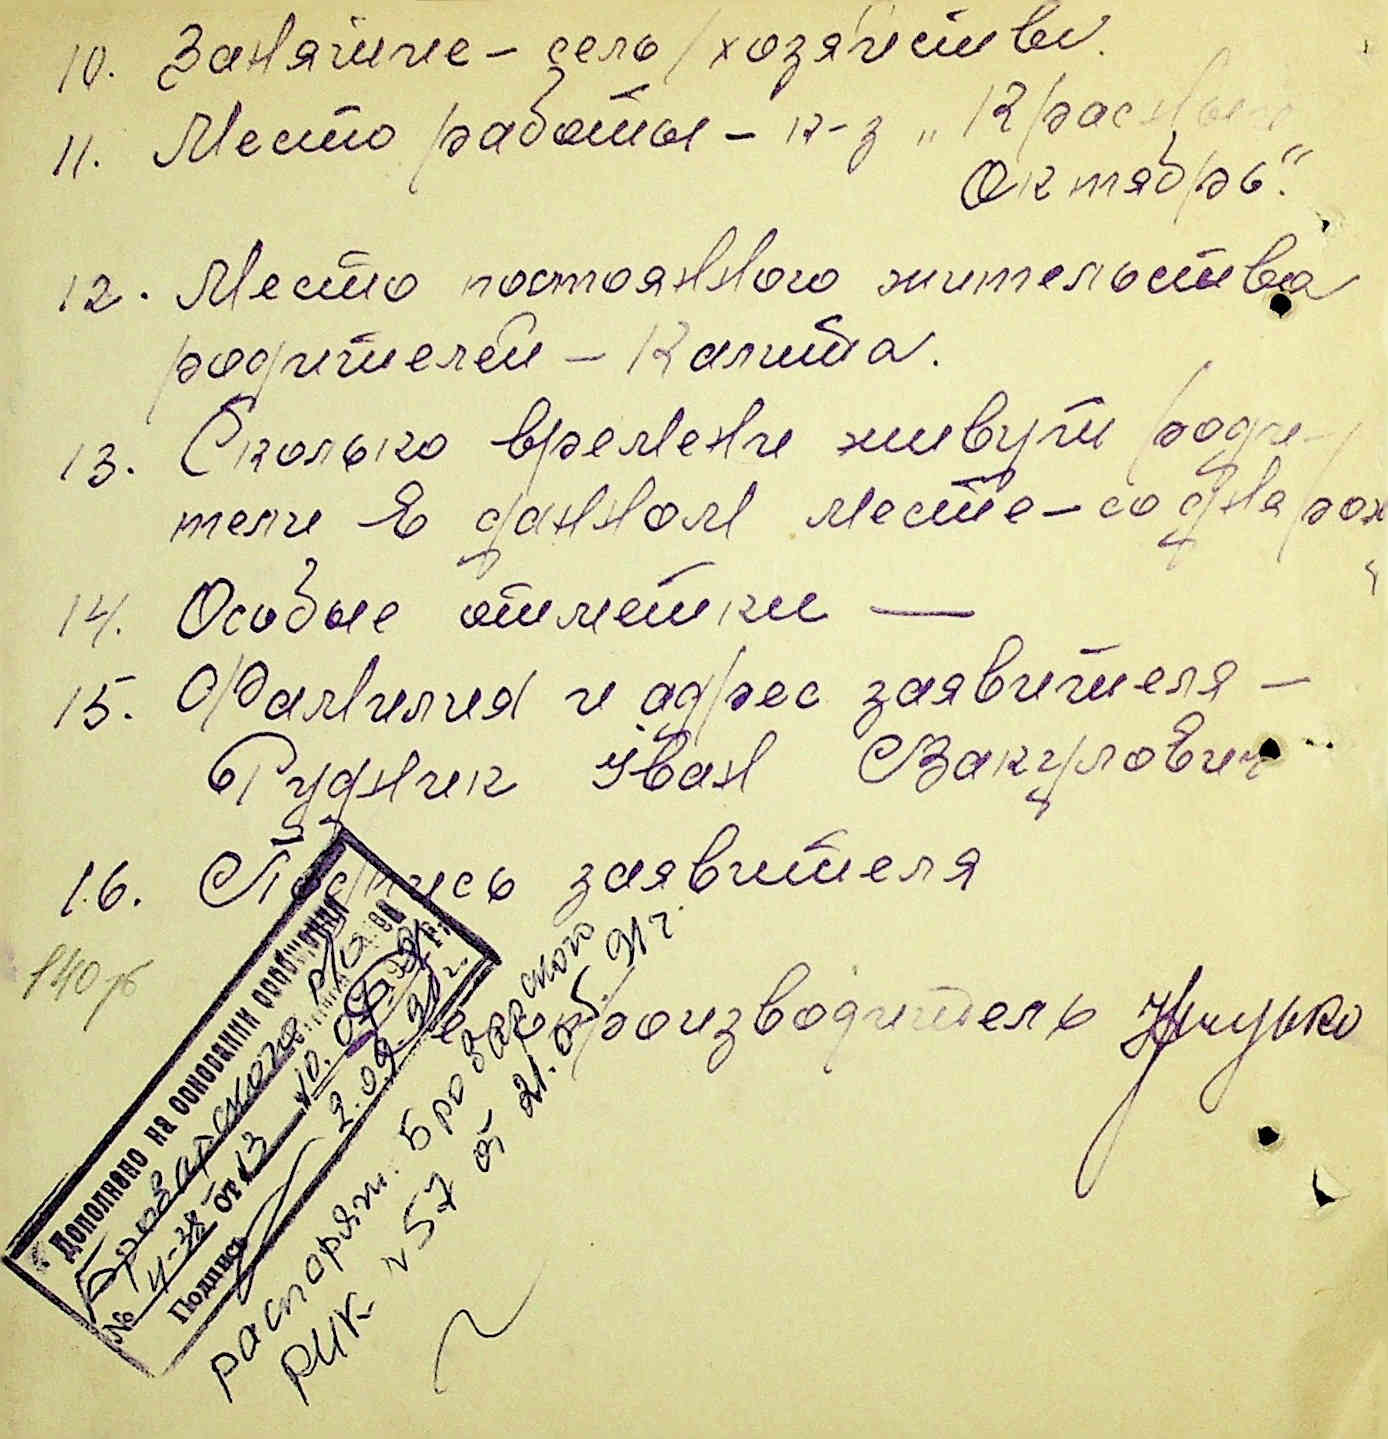 10. Занятие – сель/хозяйство.
11. Место работы – к-з „Красный
Октябрь".
12. Место постоянного жительства
родителей – Калита.
13. Сколько времени живут роди-
тели в данном месте – со дня рож
14. Особые отметки —
15. Фамилия и адрес заявителя –
Рудник Иван Вакулович
16. Подпись заявителя
140
производитель
Дополнено на основании сообщения
Броварского
№ от 13
2.09.91г.
Подпись
распоряж. Броварского
РИК №57 от 21.05.91г.